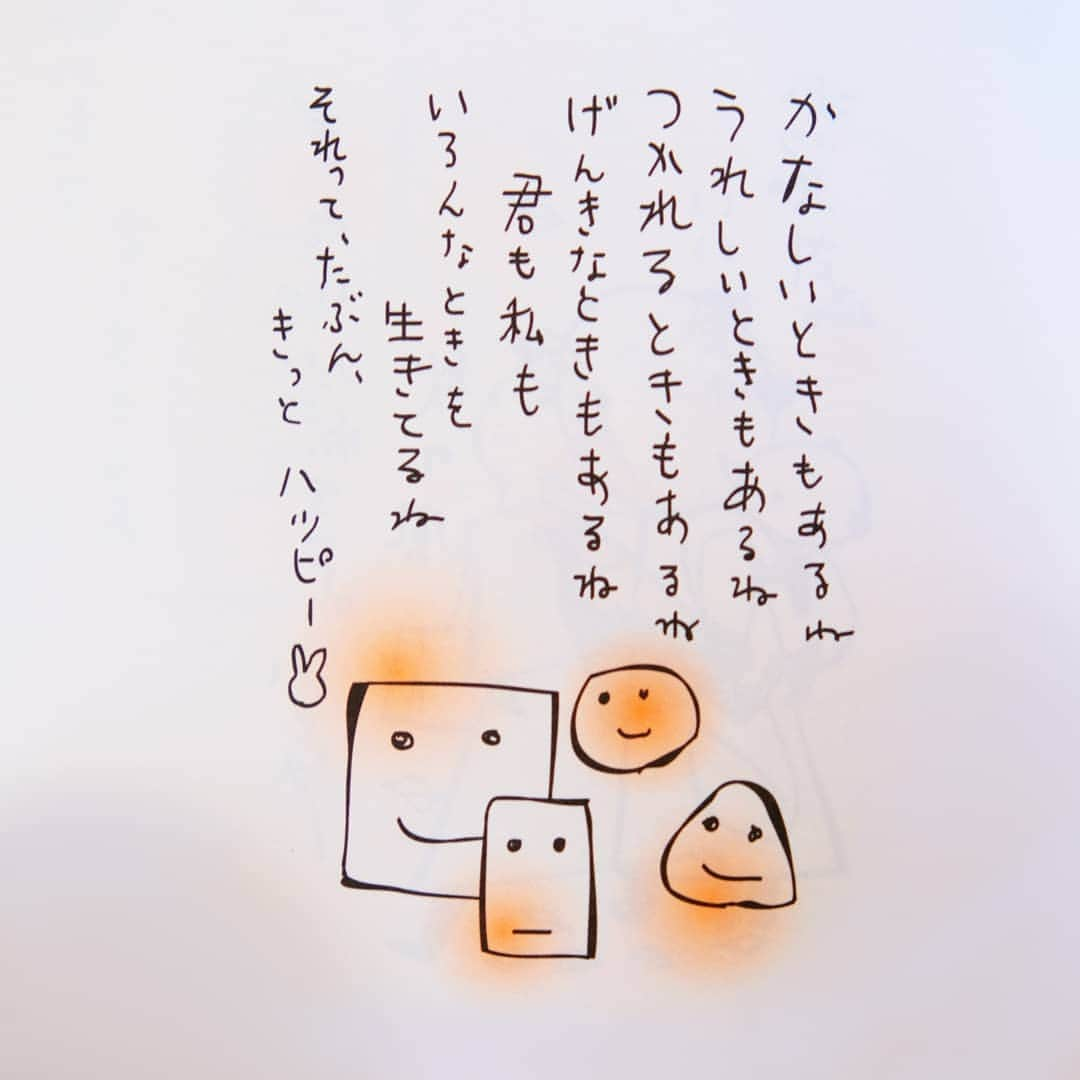 かなしいときもあるね
うれしいときもあるね
つかれるときもあるね
げんきなときもあるね
君も私も
いろんなときを
生きてるね
それって、たぶん、
きっと ハッピー